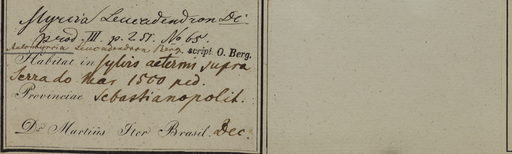 Myrcia Leucadendron Dc
prod. III. p. 251. No 65.
Aulomyrcia Leucadendron Berg. script. O. Berg.
Habitat in sylvis aeternis supra
Serra do Mar 1500 ped.
Provinciae Sebastianopolit.
Dr. Martius Iter Brasil. Dec.